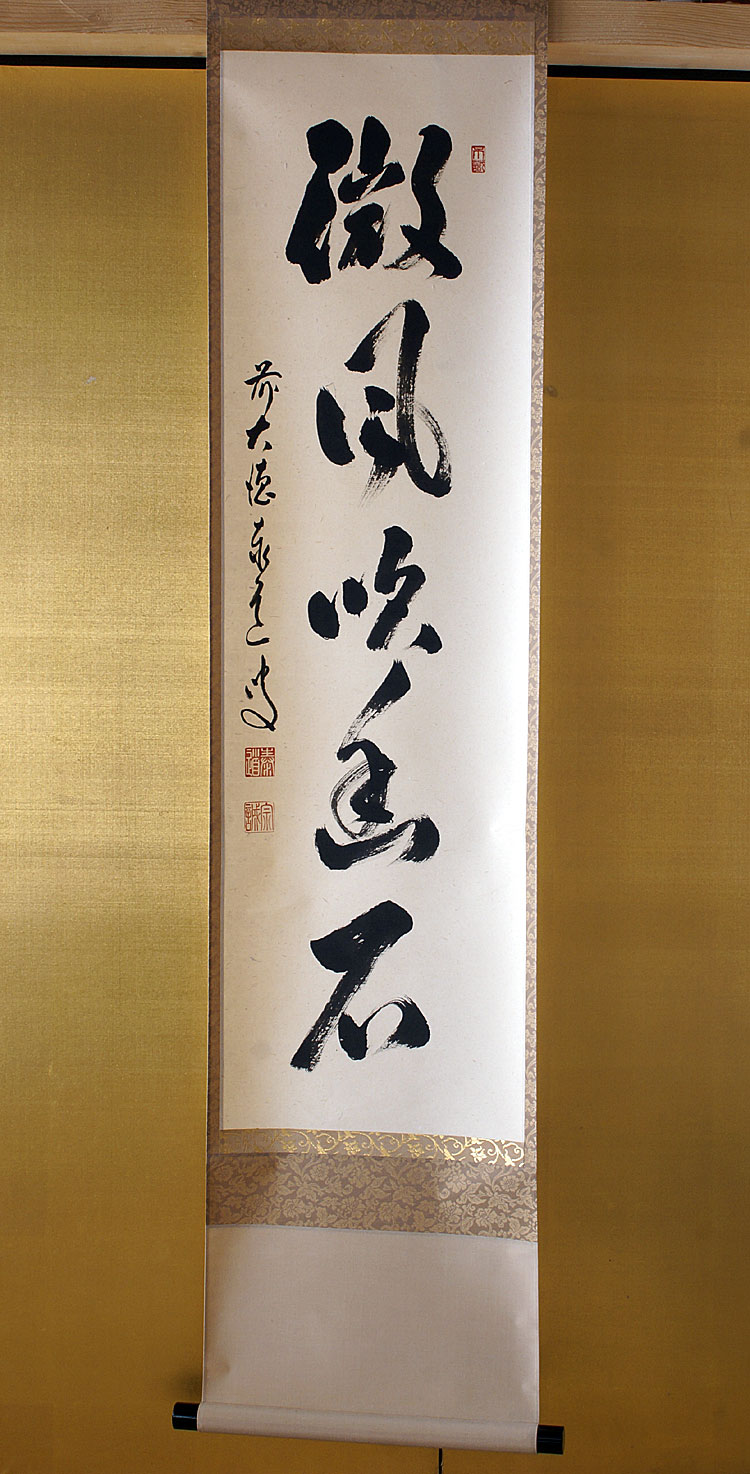 微風吹幽石
前大徳泰道叟
泰道
宗誠